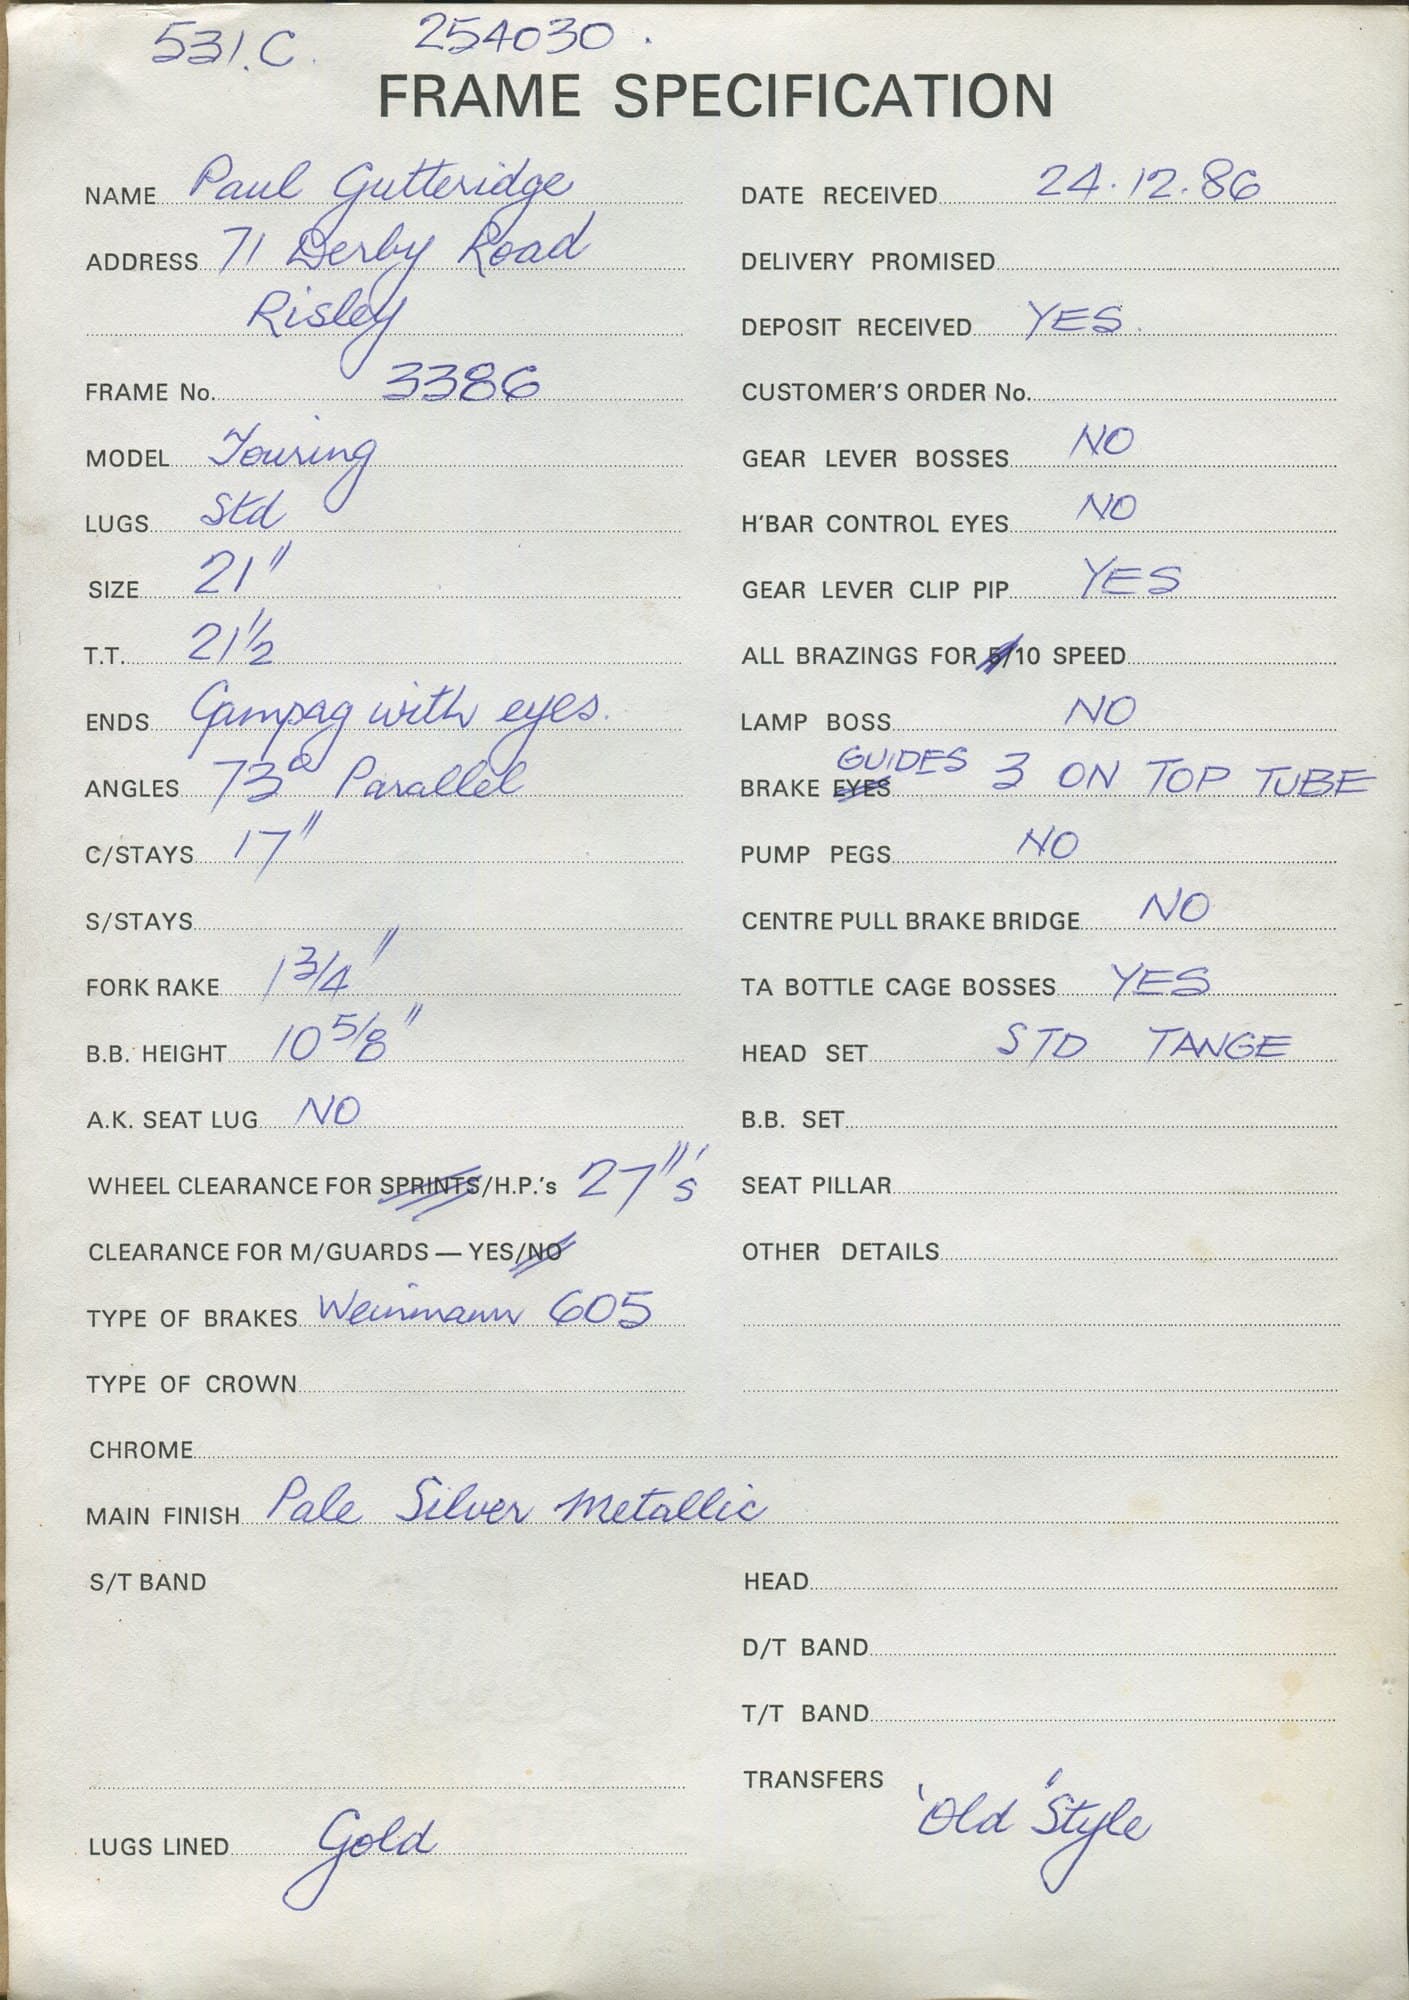 531.C. 254030.
FRAME SPECIFICATION
NAME Paul Gutteridge
ADDRESS 71 Derby Road
Risley
FRAME No. 3386
MODEL Touring
LUGS Std
SIZE 21"
T.T. 21 1/2
ENDS Campag with eyes.
ANGLES 73° Parallel
C/STAYS 17"
S/STAYS
FORK RAKE 1 3/4"
B.B. HEIGHT 10 5/8"
A.K. SEAT LUG NO
WHEEL CLEARANCE FOR SPRINTS/H.P.'s 27"'s
CLEARANCE FOR M/GUARDS — YES/NO
TYPE OF BRAKES Weinmann 605
TYPE OF CROWN
CHROME
MAIN FINISH Pale Silver Metallic
S/T BAND
LUGS LINED Gold
DATE RECEIVED 24.12.86
DELIVERY PROMISED
DEPOSIT RECEIVED YES.
CUSTOMER'S ORDER No.
GEAR LEVER BOSSES NO
H'BAR CONTROL EYES NO
GEAR LEVER CLIP PIP YES
ALL BRAZINGS FOR 5/10 SPEED
LAMP BOSS NO
BRAKE EYES GUIDES 3 ON TOP TUBE
PUMP PEGS NO
CENTRE PULL BRAKE BRIDGE NO
TA BOTTLE CAGE BOSSES YES
HEAD SET STD TANGE
B.B. SET
SEAT PILLAR
OTHER DETAILS
HEAD
D/T BAND
T/T BAND
TRANSFERS
'Old' Style